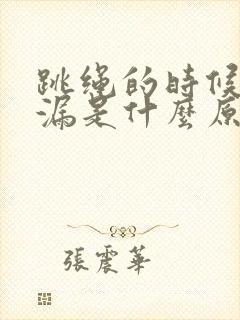 跳繩的時候
漏是什麼原
張震華